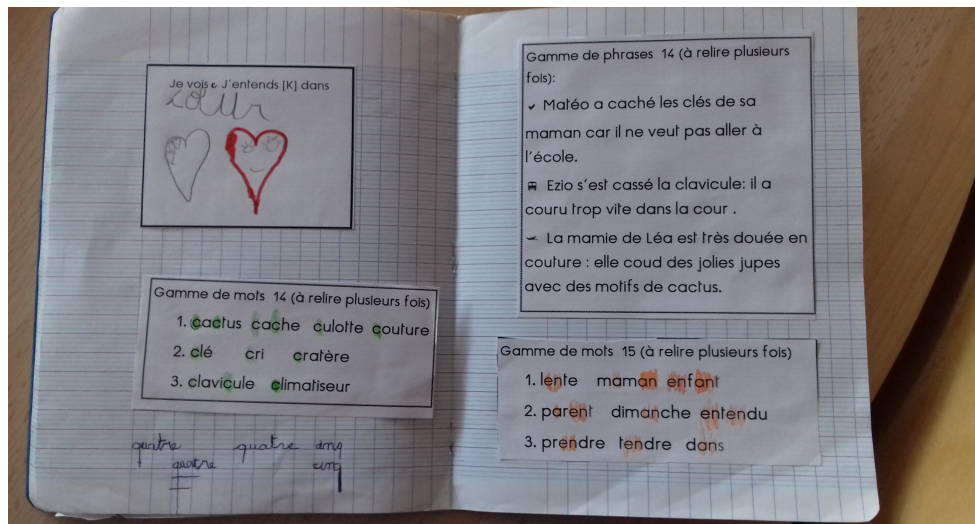 Je vois c J'entends [K] dans
cœur
Gamme de mots 14 (à relire plusieurs fois)
1. cactus cache culotte couture
2. clé cri cratère
3. clavicule climatiseur
quatre cinq
quatre cinq
Gamme de phrases 14 (à relire plusieurs
fois):
Matéo a caché les clés de sa
maman car il ne veut pas aller à
l'école.
Ezio s'est cassé la clavicule: il a
couru trop vite dans la cour .
La mamie de Léa est très douée en
couture : elle coud des jolies jupes
avec des motifs de cactus.
Gamme de mots 15 (à relire plusieurs fois)
1. lente maman enfant
2. parent dimanche entendu
3. prendre tendre dans